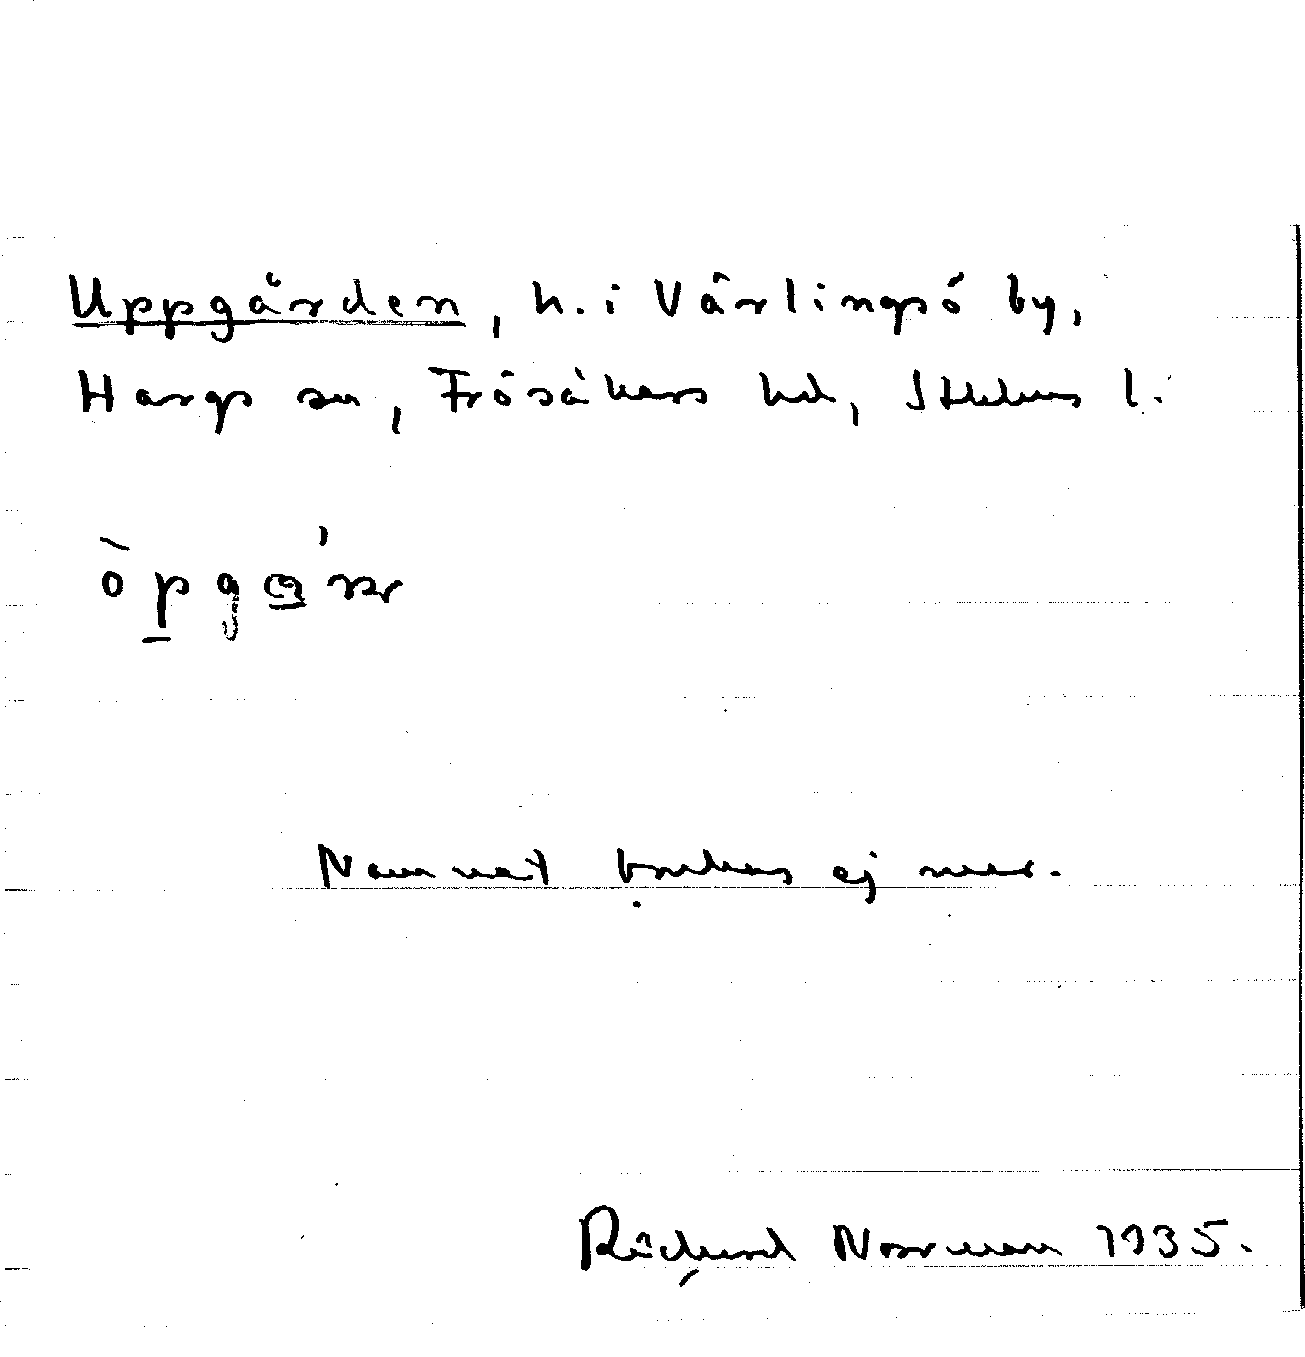 Uppgården, h. i Värlingsö by,
Hargs sn, Frösåkers hd, Sthlms l.
Namnet brukas ej mer.
Richard Norrman 1935.